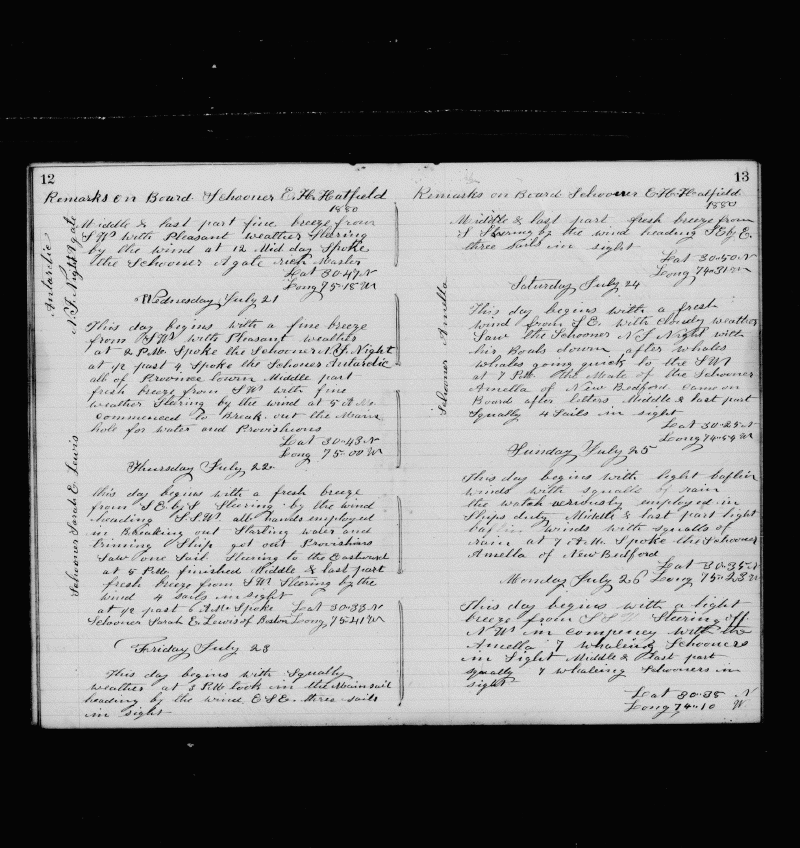 12
Remarks on Board Schooner E. H. Hatfield
1880
Antarctic
N. J. Night Agate
Middle & last part fine breeze from
S W with Pleasant weather Stering
by the wind at 12 Mid day Spoke
the Schooner Agate master
Lat 30-47 N
Long 75-18 W
Wednesday July 21
This day begins with a fine breeze
from S W with Pleasant weather
at 2 P.M. Spoke the Schooner N. J. Night
at 1/2 past 4 Spoke the Schoner Antarctic
all of Province town Middle part
fresh breeze from S W with fine
weather Stering by the wind at 5 A.M.
commenced to Break out the Main
hole for water and Provishions
Lat 30-43 N
Long 75-00 W
Thursday July 22
Schooner Sarah E. Lewis
this day begins with a fresh breeze
from S E by S Steering by the wind
heading S S W all hands employed
in Breaking out Starting water and
triming Ship got out Provishions
Saw one Sail Stering to the Eastward
at 5 P.M. finished Middle & last part
fresh breeze from S W Steering by the
wind 4 sails in sight
at 1/2 past 6 A.M. Spoke Lat 30-33 N
Schooner Sarah E. Lewis of Boston Long 75-41 W
Friday July 23
This day begins with Squally
weather at 3 P.M. took in the Mainsail
heading by the wind E S E three sails
in sight
13
Remarks on Board Schooner E. H. Hatfield
1880
Middle & last part fresh breeze from
S Stering by the wind heading S E by E
three Sails in sight
Lat 30-50 N
Long 74-31 W
Saturday July 24
Schooner Amella
This day begins with a fresh
wind from S E with cloudy weather
Saw the Schooner N J Night with
his Boats down after whales
whales going quick to the S W
at 7 P.M. the Mate of the Schooner
Amella of New Bedford came on
Board after letters Middle & last part
Squally 4 Sails in sight
Lat 30-25 N
Long 74-54 W
Sunday July 25
This day begins with light baflin
winds with squalls of rain
the watch veriously employed in
Ships duty Middle & last part light
baflin winds with squalls of
rain at 7 A.M. Spoke the Schooner
Amella of New Bedford
Lat 30-35 N
Monday July 26 Long 75-23 W
This day begins with a light
breeze from Steering off
N W in company with the
Amella 7 whaling Schooners
in Sight Middle & last part
squally 7 whaling Schooners in
sight
Lat 30-38 N
Long 74-10 W